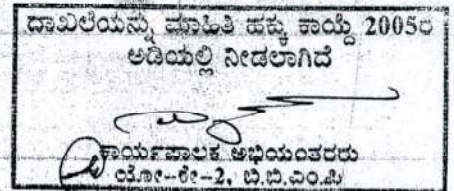 ದಾಖಲೆಯನ್ನು ಮಾಹಿತಿ ಹಕ್ಕು ಕಾಯ್ದೆ 2005ರ
ಅಡಿಯಲ್ಲಿ ನೀಡಲಾಗಿದೆ
ಕಾರ್ಯಪಾಲಕ ಅಭಿಯಂತರರು
ಯೋ-ಕೇ-2, ಬಿ.ಬಿ.ಎಂ.ಪಿ